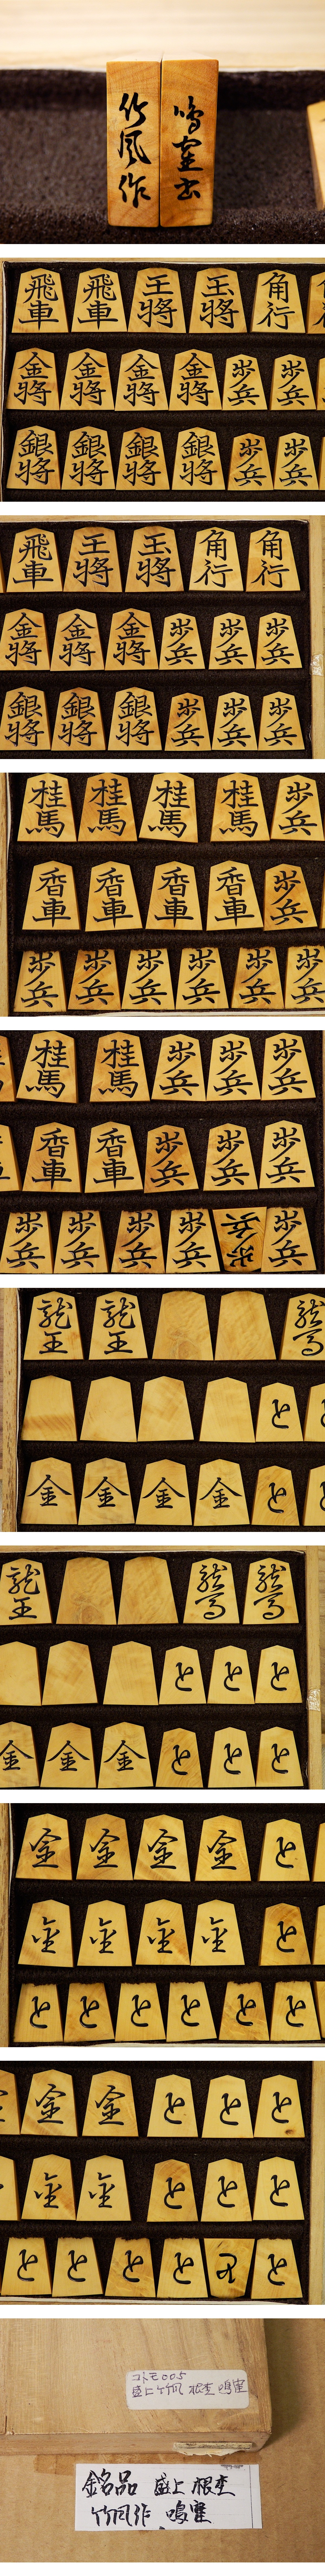 竹風作
飛車 飛車 王將 玉將 角行
金將 金將 金將 金將 歩兵 歩兵
銀將 銀將 銀將 銀將 歩兵 歩兵
飛車 王將 玉將 角行 角行
金將 金將 金將 歩兵 歩兵 歩兵
銀將 銀將 銀將 歩兵 歩兵 歩兵
桂馬 桂馬 桂馬 桂馬 歩兵
香車 香車 香車 香車 歩兵
歩兵 歩兵 歩兵 歩兵 歩兵 歩兵
桂馬 桂馬 歩兵 歩兵 歩兵
香車 香車 歩兵 歩兵 歩兵
歩兵 歩兵 歩兵 歩兵 歩兵 歩兵
龍王 龍王 龍馬
と
金 金 金 金 と
龍王 龍馬 龍馬
と と と
金 金 金 と と と
金 金 金 金 と
金 金 金 金 と
と と と と と と
金 金 と と と
金 金 と と と
と と と と と と
コトモ005
盛上 竹風 根杢
銘品 盛上 根杢
竹風作